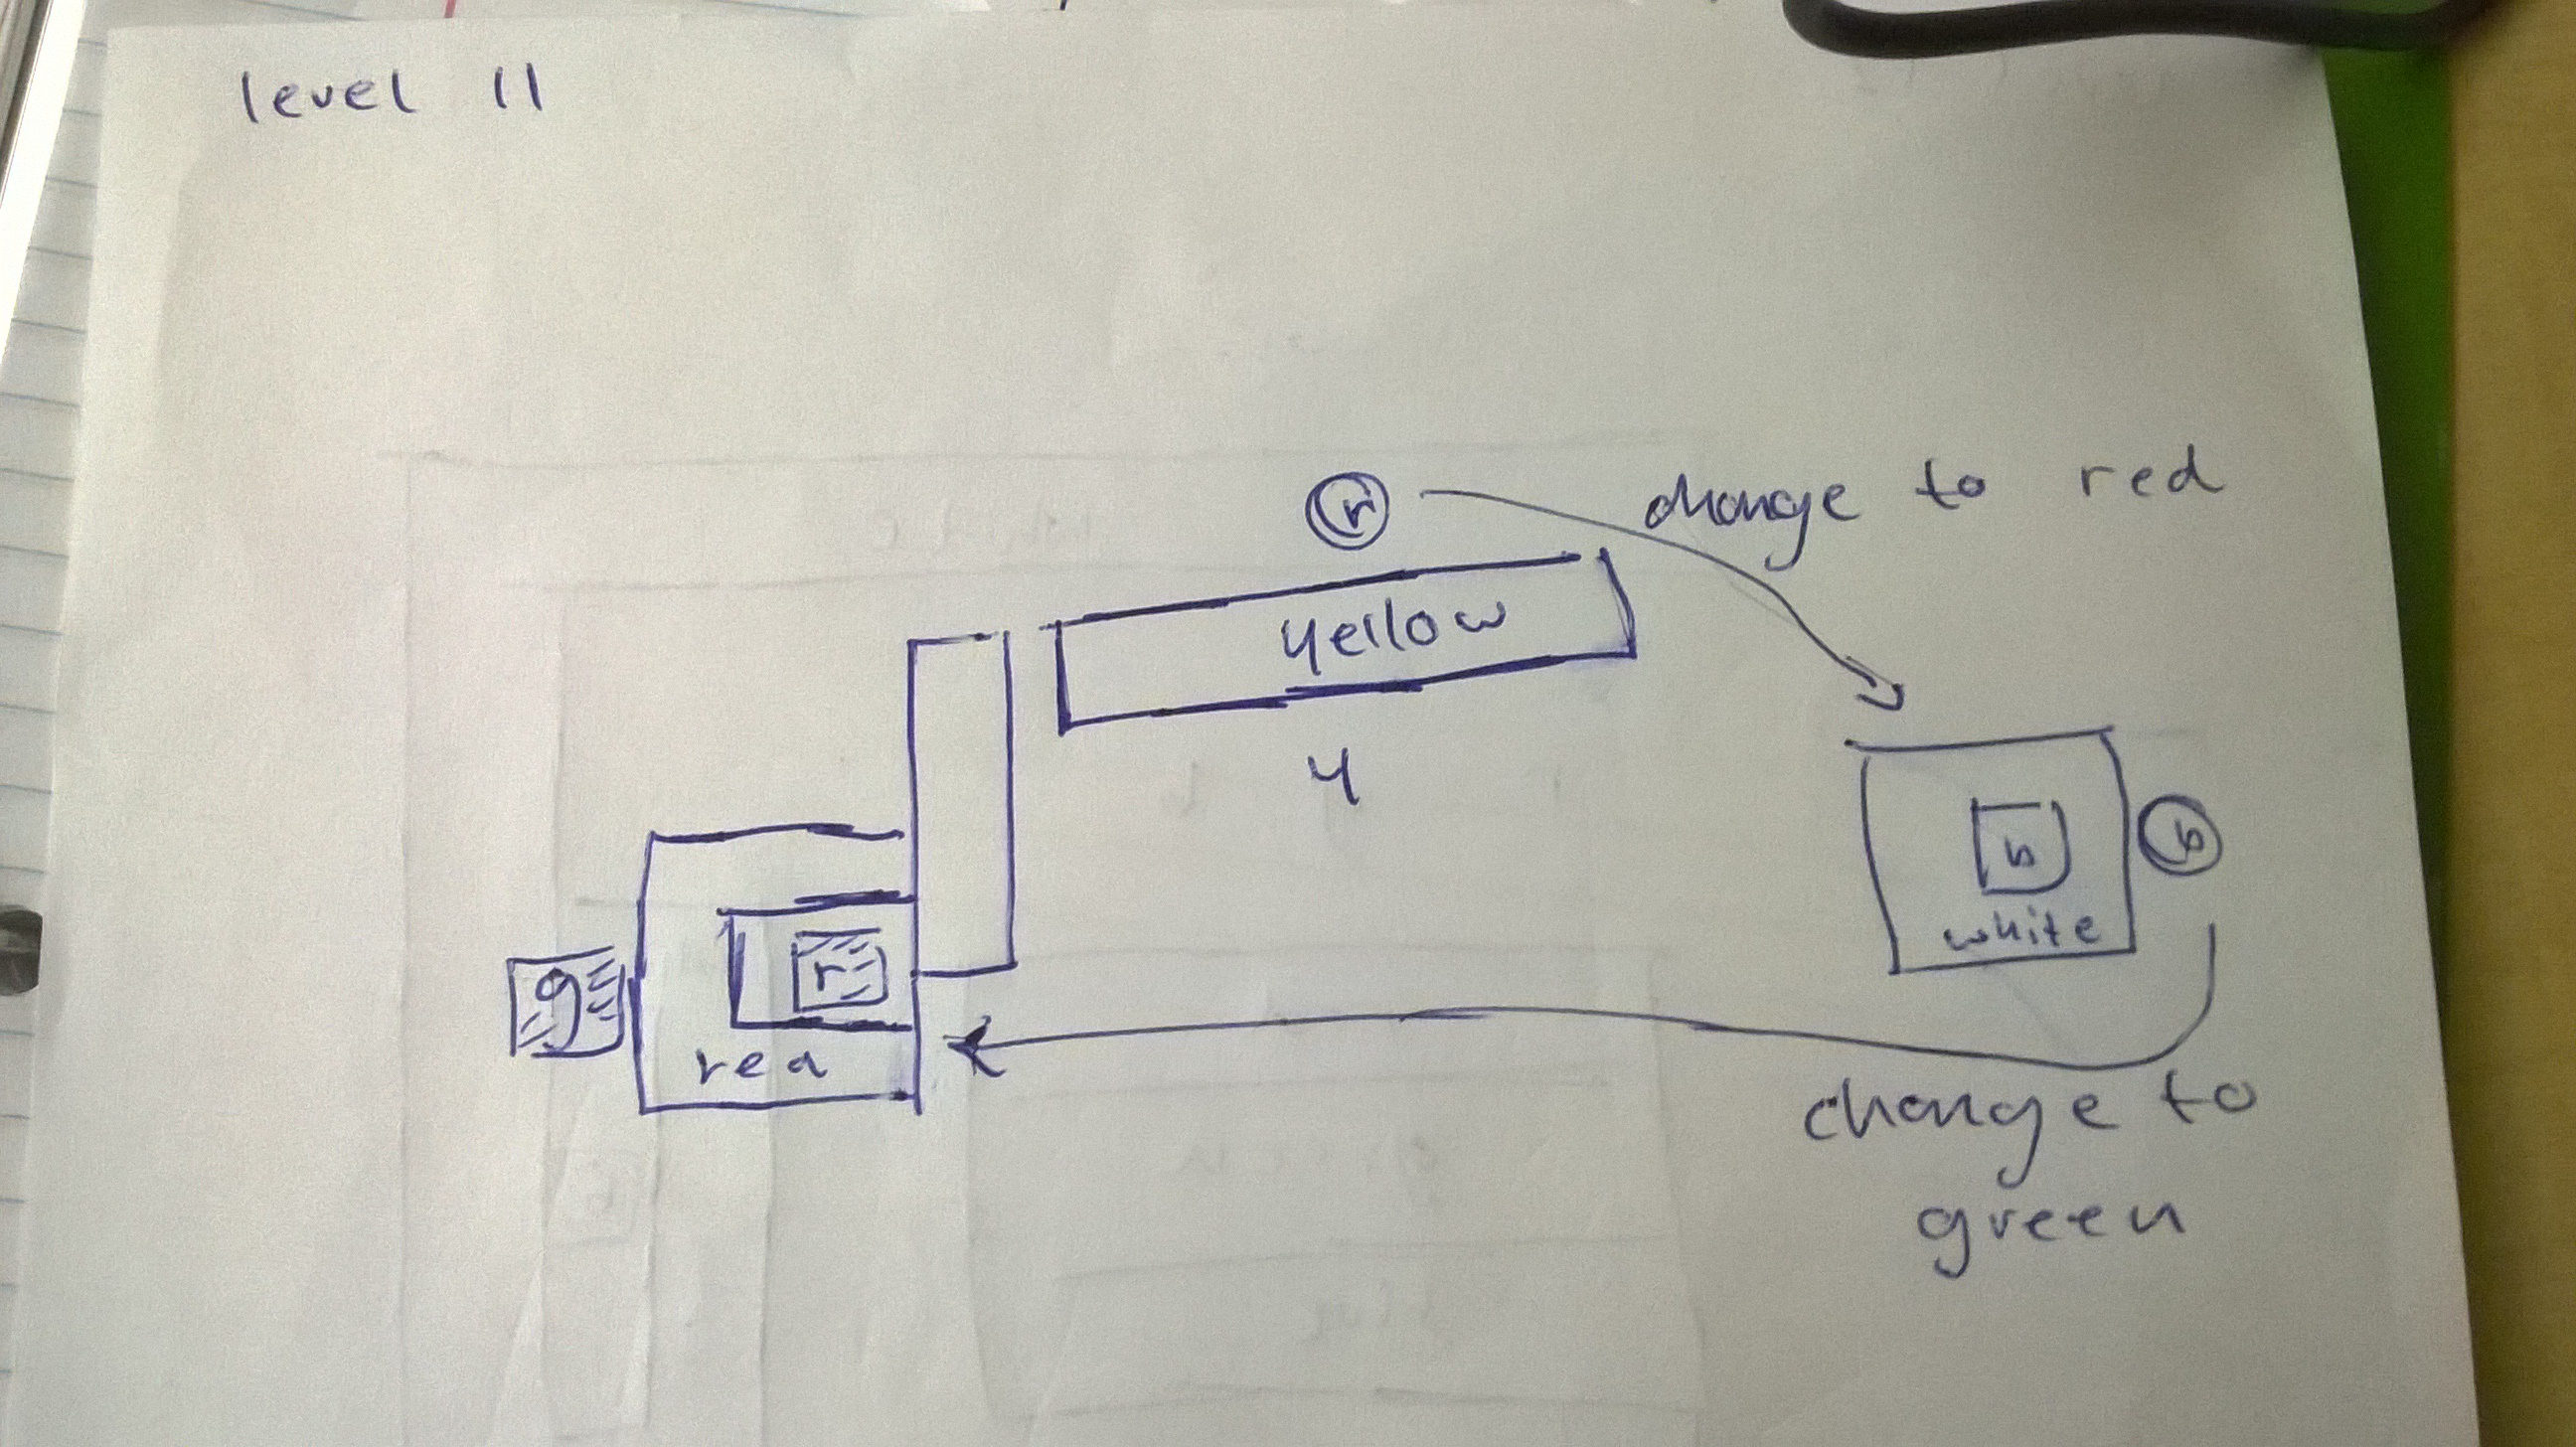 level 11
r
change to red
yellow
y
b
b
white
r
g
red
change to
green